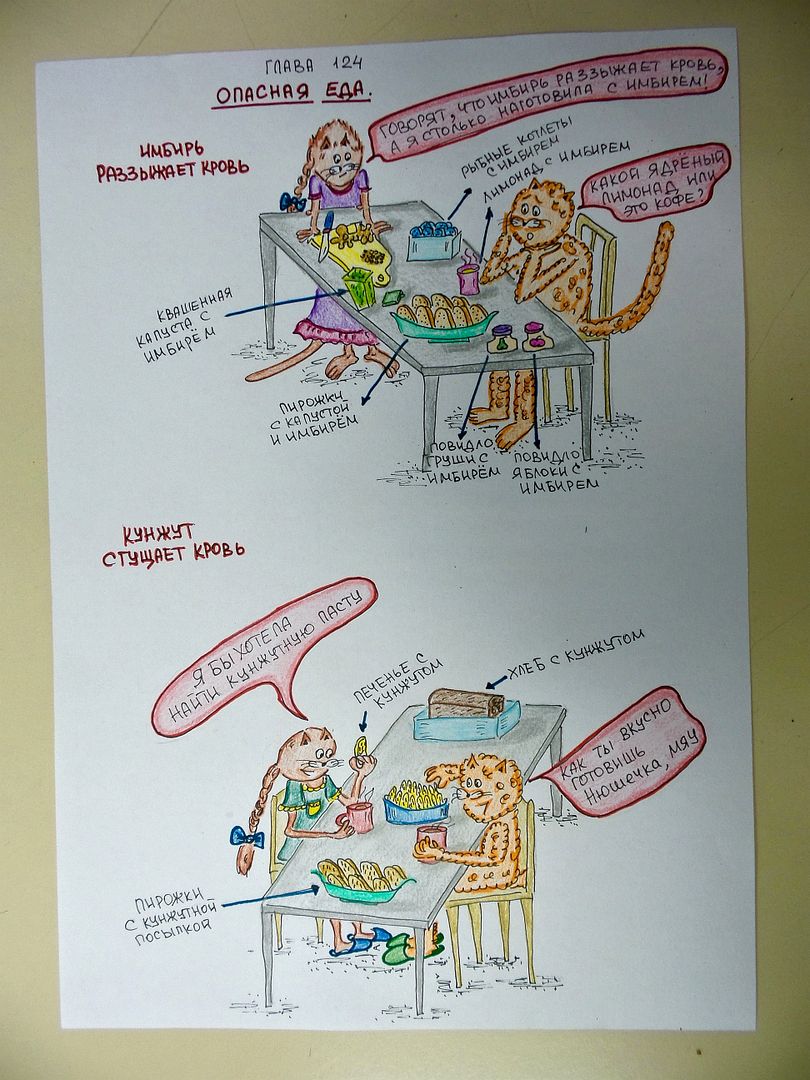 ГЛАВА 124
ОПАСНАЯ ЕДА.
ИМБИРЬ
РАЗЗЫЖАЕТ КРОВЬ
ГОВОРЯТ, ЧТО ИМБИРЬ РАЗЗЫЖАЕТ КРОВЬ,
А Я СТОЛЬКО НАГОТОВИЛА С ИМБИРЕМ!
РЫБНЫЕ КОТЛЕТЫ
С ИМБИРЕМ
ЛИМОНАД С ИМБИРЕМ
КАКОЙ ЯДРЁНЫЙ
ЛИМОНАД ИЛИ
ЭТО КОФЕ?
КВАШЕННАЯ
КАПУСТА С
ИМБИРЕМ
ПИРОЖКИ
С КАПУСТОЙ
И ИМБИРЁМ
ПОВИДЛО
ГРУШИ С
ИМБИРЁМ
ПОВИДЛО
ЯБЛОКИ С
ИМБИРЕМ
КУНЖУТ
СГУЩАЕТ КРОВЬ
Я БЫ ХОТЕЛА
НАЙТИ КУНЖУТНУЮ ПАСТУ
ПЕЧЕНЬЕ С
КУНЖУТОМ
ХЛЕБ С КУНЖУТОМ
КАК ТЫ ВКУСНО
ГОТОВИШЬ
НЮШЕЧКА, МЯУ
ПИРОЖКИ
С КУНЖУТНОЙ
ПОСЫПКОЙ